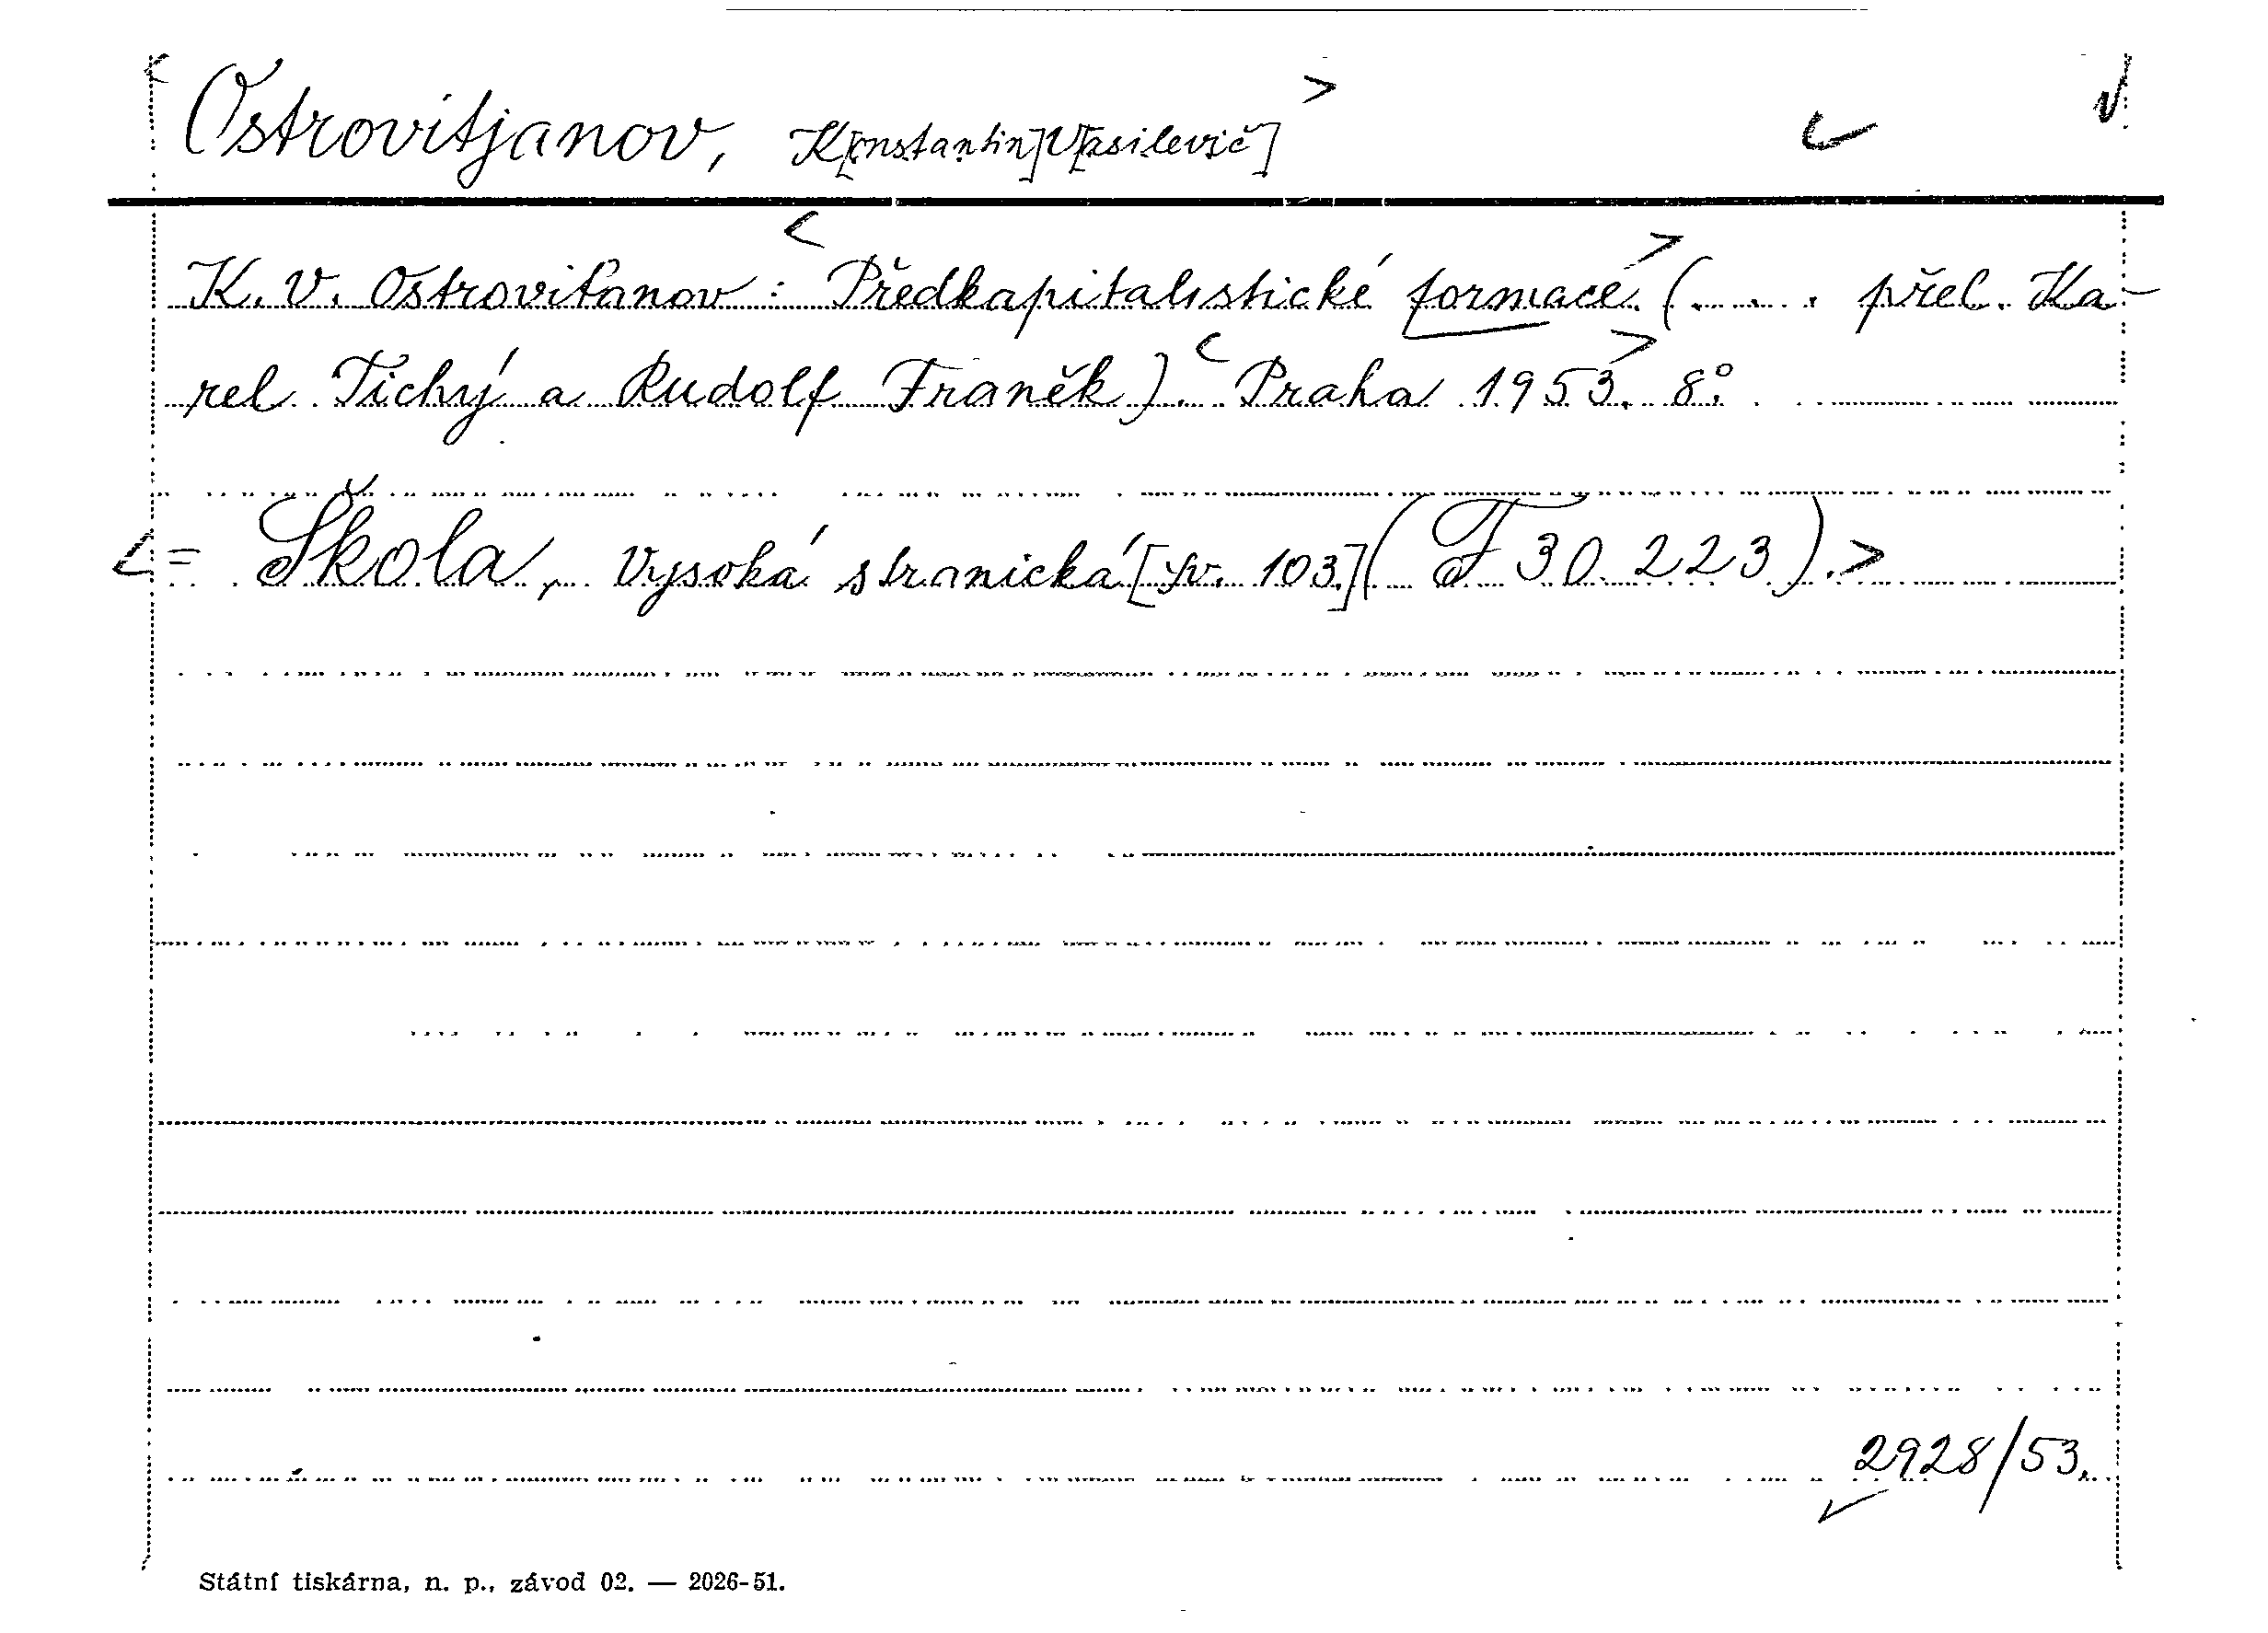 < Ostrovitjanov, K[onstantin] V[asilevič] >
K. V. Ostroviťanov: < Předkapitalistické formace > (.... přel. Ka-
rel Tichý a Rudolf Franěk). < Praha 1953. > 8°.
<= Škola, Vysoká stranická [sv. 103.] (F 30 223).>
2928/53.
Státní tiskárna, n. p., závod 02. — 2026-51.